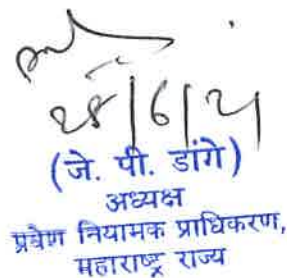 28/6/21
(जे. पी. डांगे)
अध्यक्ष
प्रवेश नियामक प्राधिकरण,
महाराष्ट्र राज्य